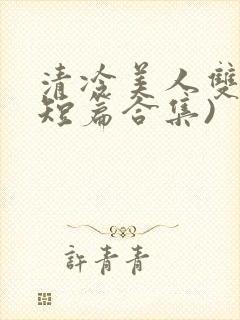 清冷美人雙
短篇合集)
許青青